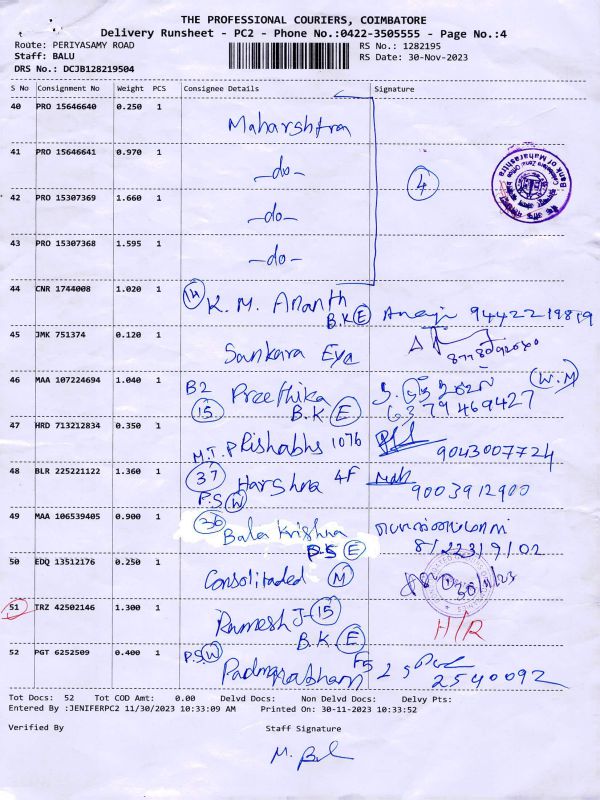 THE PROFESSIONAL COURIERS, COIMBATORE
Delivery Runsheet - PC2 - Phone No.:0422-3505555 - Page No.:4
Route: PERIYASAMY ROAD
RS No.: 1282195
Staff: BALU
RS Date: 30-Nov-2023
DRS No.: DCJB128219504
S No Consignment No Weight PCS Consignee Details Signature
40 PRO 15646640 0.250 1 Maharshtra
41 PRO 15646641 0.970 1 -do- 4
Bank of Maharashtra
42 PRO 15307369 1.660 1 -do-
43 PRO 15307368 1.595 1 -do-
44 CNR 1744008 1.020 1 14 K. M. Ananth
B.K E 9442219819
45 JMK 751374 0.120 1 Sankara Eye
46 MAA 107224694 1.040 1 B2 Preethika (W.M)
15 B.K E 6379469427
47 HRD 713212834 0.350 1 M.T.P Rishabhs 1076
9043007724
48 BLR 225221122 1.360 1 37 Harshna 4F
P.S W 9003912900
49 MAA 106539405 0.900 1 36 Bala Krishna
P.S E 8122319102
50 EDQ 13512176 0.250 1 Consolitaded M 30/11/23
51 TRZ 42502146 1.300 1 Ramesh J- 15
B.K. E H/R
52 PGT 6252509 0.400 1 P.S W Padmanabham F5
2540092
Tot Docs: 52 Tot COD Amt: 0.00 Delvd Docs: Non Delvd Docs: Delvy Pts:
Entered By :JENIFERPC2 11/30/2023 10:33:09 AM Printed On: 30-11-2023 10:33:52
Verified By Staff Signature